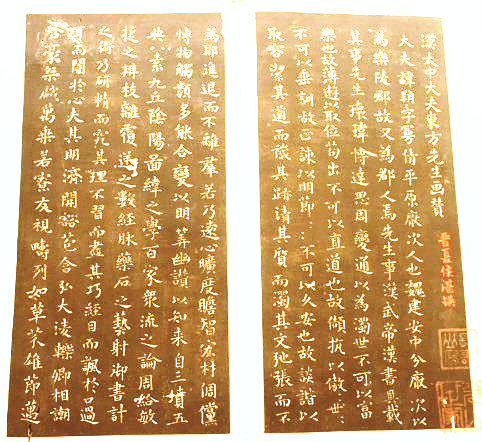 漢太中大夫東方先生画賛
晉夏侯湛撰
大夫諱朔字曼倩平原厭次人也魏建安中分厭次以
為樂陵郡故又為郡人焉先生事漢武帝漢書具載
其事先生瓌瑋博達思周變通以為濁世不可以富
樂也故薄遊以取位苟出不可以直道也故頡抗以傲世〻
不可以垂訓故正諫以明節〻不可以久安也故談諧以
取容潔其道而穢其跡清其質而濁其文弛張而不
為耶進退而不離羣若乃遠心曠度瞻智宏材倜儻
博物觸類多能合變以明筭幽讚以知来自三墳五
典八索九丘陰陽圖緯之學百家衆流之論周給敏
捷之辨枝離覆逆之數經脉藥石之藝射御書計
之術乃研精而究其理不習而盡其巧經目而諷於口過
耳而闇於心夫其明濟開豁包含弘大淩轢卿相潮
哂豪桀戱萬乗若寮友視疇列如草芥雄節邁